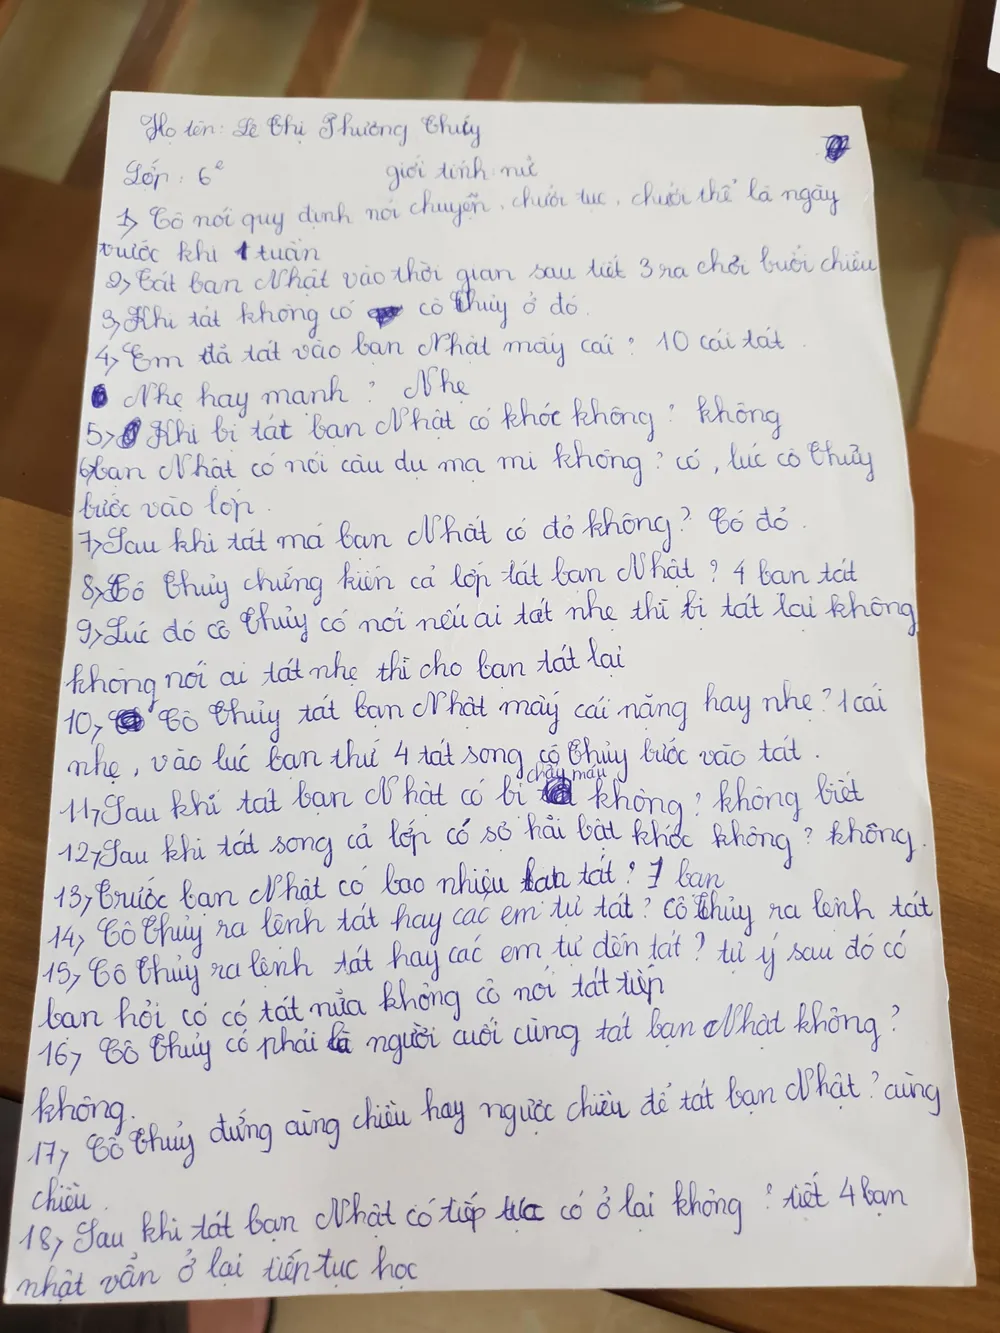 Họ tên: Lê Thị Phương Thúy
Lớp: 6e giới tính: nữ
1, Cô nói quy định nói chuyễn, chưởi tục, chưởi thề là ngày
trước khi 1 tuần
2, Tát bạn Nhật vào thời gian sau tiết 3 ra chơi buổi chiều
3, Khi tát không có cô Thủy ở đó.
4, Em đã tát vào bạn Nhật mấy cái? 10 cái tát.
Nhẹ hay mạnh? Nhẹ
5, Khi bị tát bạn Nhật có khóc không? không
6, bạn Nhật có nói câu dụ mạ mi không? có, lúc cô Thủy
bước vào lớp.
7, Sau khi tát má bạn Nhất có đỏ không? Có đỏ.
8, Cô Thủy chứng kiến cả lớp tát bạn Nhật? 4 bạn tát
9, Lúc đó cô Thủy có nói nếu ai tát nhẹ thì bị tát lại không
không nói ai tát nhẹ thì cho bạn tát lại
10, Cô Thủy tát bạn Nhật mấy cái nặng hay nhẹ? 1 cái
nhẹ, vào lúc bạn thứ 4 tát song cô Thủy bước vào tát.
11, Sau khi tát bạn Nhật có bị chảy máu không? không biết
12, Sau khi tát song cả lớp có sợ hãi bật khóc không? không.
13, Trước bạn Nhật có bao nhiêu bạn tát? 7 bạn
14, Cô Thủy ra lệnh tát hay các em tự tát? Cô Thủy ra lệnh tát
15, Cô Thủy ra lệnh tát hay các em tự đến tát? tự ý sau đó có
bạn hỏi có có tát nữa không cô nói tát tiếp
16, Cô Thủy có phải là người cuối cùng tát bạn Nhật không?
không.
17, Cô Thủy đứng cùng chiều hay ngược chiều để tát bạn Nhật? cùng
chiều.
18, Sau khi tát bạn Nhật có tiếp tục có ở lại không? tiết 4 bạn
nhật vẫn ở lại tiếp tục học